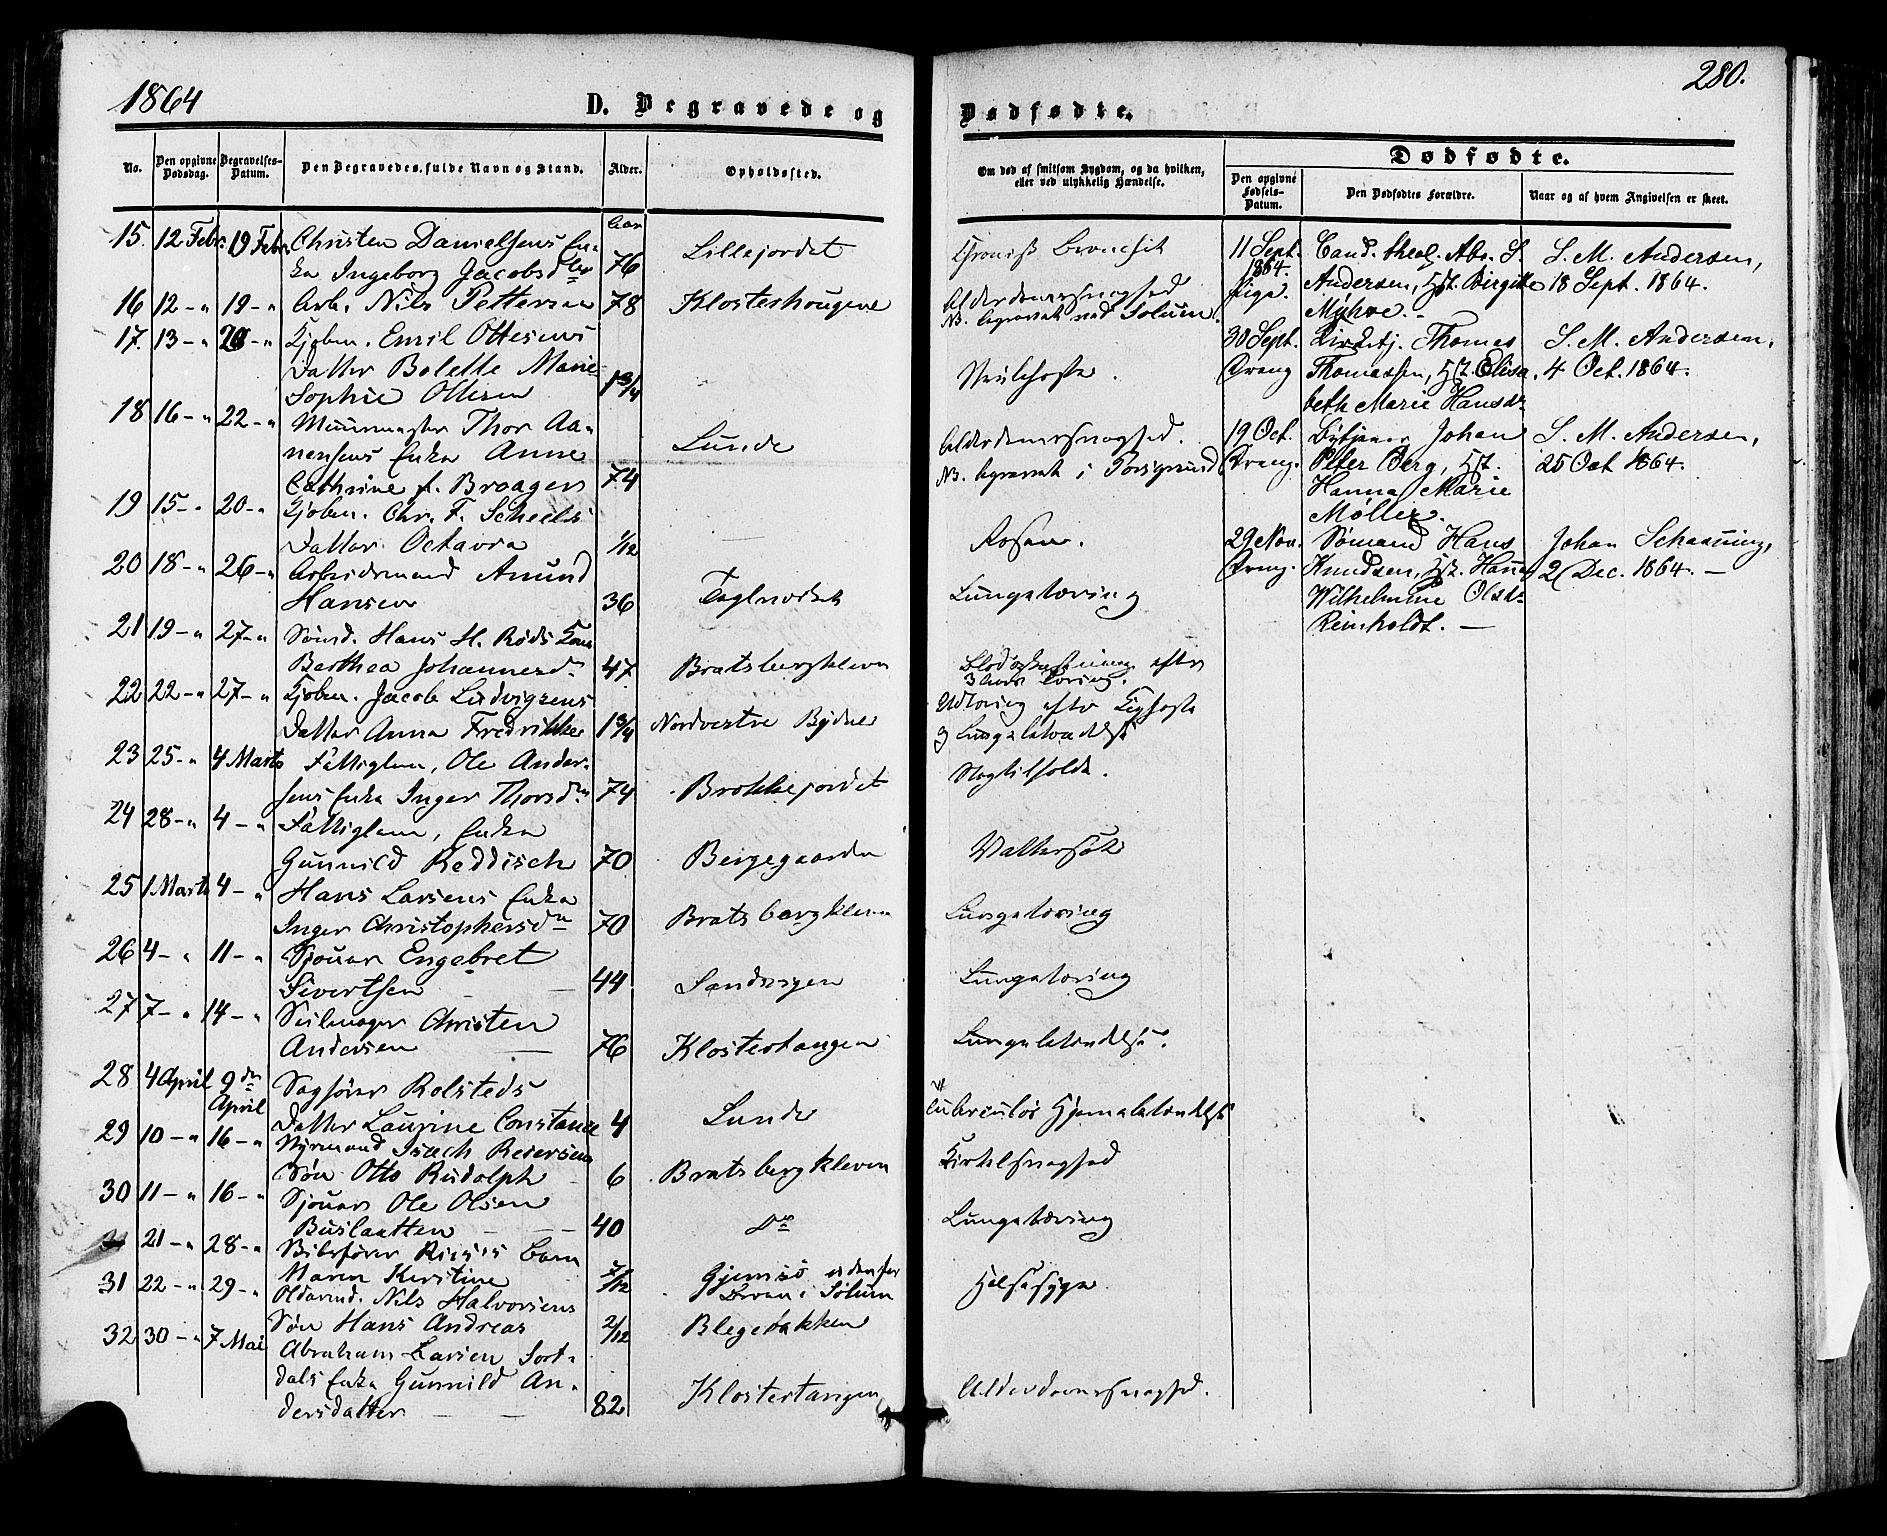 1864
D. Begravede og
Dødfødte.
280.
No.
Den opgivne Dødsdag.
Begravelses-Datum.
Den Begravedes fulde Navn og Stand.
Alder.
Opholdssted.
Om død af smitsom Sygdom, og da hvilken, eller ved ulykkelig Hændelse.
Dødfødte.
Den opgivne Fødsels-Datum.
Den Dødfødtes Forældre.
Naar og af hvem Angivelsen er skeet.
Aar
15. 12 Febr. 19 Febr. Christen Danielsens En-
ka Ingeborg Jacobsdtr 76 Lillejordet Chronisk Bronchit
16 12 - " 19 - " Arb. Nils Pettersen 78 Klosterhougene Alderdomssvaghed
NB. begravet ved Solum.
17. 13 - " 20 - " Kjøbm. Emil Ottesens
Datter Bolette Marie
Sophie Ottesen 1 3/4
18 16 - " 22 - " Muurmester Thor Aa-
nensens Enke Anne Lunde Alderdomssvaghed.
Cathrine f. Braager 74 NB. begravet i Porsgrund
19 15 - " 20 - " Kjøbm. Chr. F. Scheels
Datter Octavia 1/12 — Rosen.
20 18 - " 26 - " Arbeidsmand Amund
Hansen 36 Lungetæring
21 19 - " 27 - " Sømd. Hans H. Røds Kone
Berthea Johannesdr 47. Bratsbergkleven Blodophostning efter
3 Aars Tæring.
22 22 - " 27 - " Kjøbm. Jacob Ludvigsens
Datter Anna Fredrikke 1 3/4 Nordvestre Bydel Udtæring efter Kighoste
og Lungebetændelse
23 25 - " 4 Marts Fattiglem, Ole Ander-
sens Enke Inger Thorsdr 74 Brekkejordet Slagtilfælde.
24 28 - " 4 - " Fattiglem, Enke
Gunnild Reddisch 70 Bergegaarden Vattersot
25 1 Marts 4 - " Hans Larsens Enke
Inger Christophersdr 70 Bratsbergkleven Lungetæring
26 4 - " 11 - " Sjouer Engebret
Sivertsen 44 Sandvigen Lungetæring
27 7 - " 14 - " Seilmager Christen
Andersen 76 Klostertangen Lungebetændelse.
28 4 April 9de April Sagfører Rolsteds
Datter Laurine Constance 4 Lunde Tuberculøs Hjernebetændelse
29 10 - " 16 - " Styrmand Isach Reiersens
Søn Otto Rudolph 6 Bratsbergkleven Kirtelsvaghed
30 11 - " 16 - " Sjouer Ole Olsen
Buslaatten 40 Do Lungetæring
21 - " 28 - " Barn
Maren Kirstine 7/12 Gjemsø udenfor
Byen i Solum Halsesyge
31 22 - " 29 - " Nils Halvorsens
Søn Hans Andreas 2/12 Blegebakken
32 30 - " 7 Mai Abraham Larsen Sort-
dals Enke Gunnild An-
dersdatter 82 Klostertangen Alderdomssvaghed.
11 Sept. 1864. Pige. Cand. theol. Abr. S.
Andersen, Hst. Birgitte
Myhre.
S. M. Andersen,
18 Sept. 1864.
30 Sept. Dreng Kirketj. Thomas
Thomassen, Hst. Elisa-
beth Marie Hansdr
S. M. Andersen,
4 Oct. 1864.
19 Oct. Dreng. Bytjener Johan
Peter Berg, Hst.
Hanna Marie
Møller.
S. M. Andersen,
25 Oct 1864.
29 Nov. Dreng. Sømand Hans
Knudsen, Hst. Hanna
Wilhelmine Olsdr
Reinholdt. —
Johan Schanning,
2 Dec. 1864. —